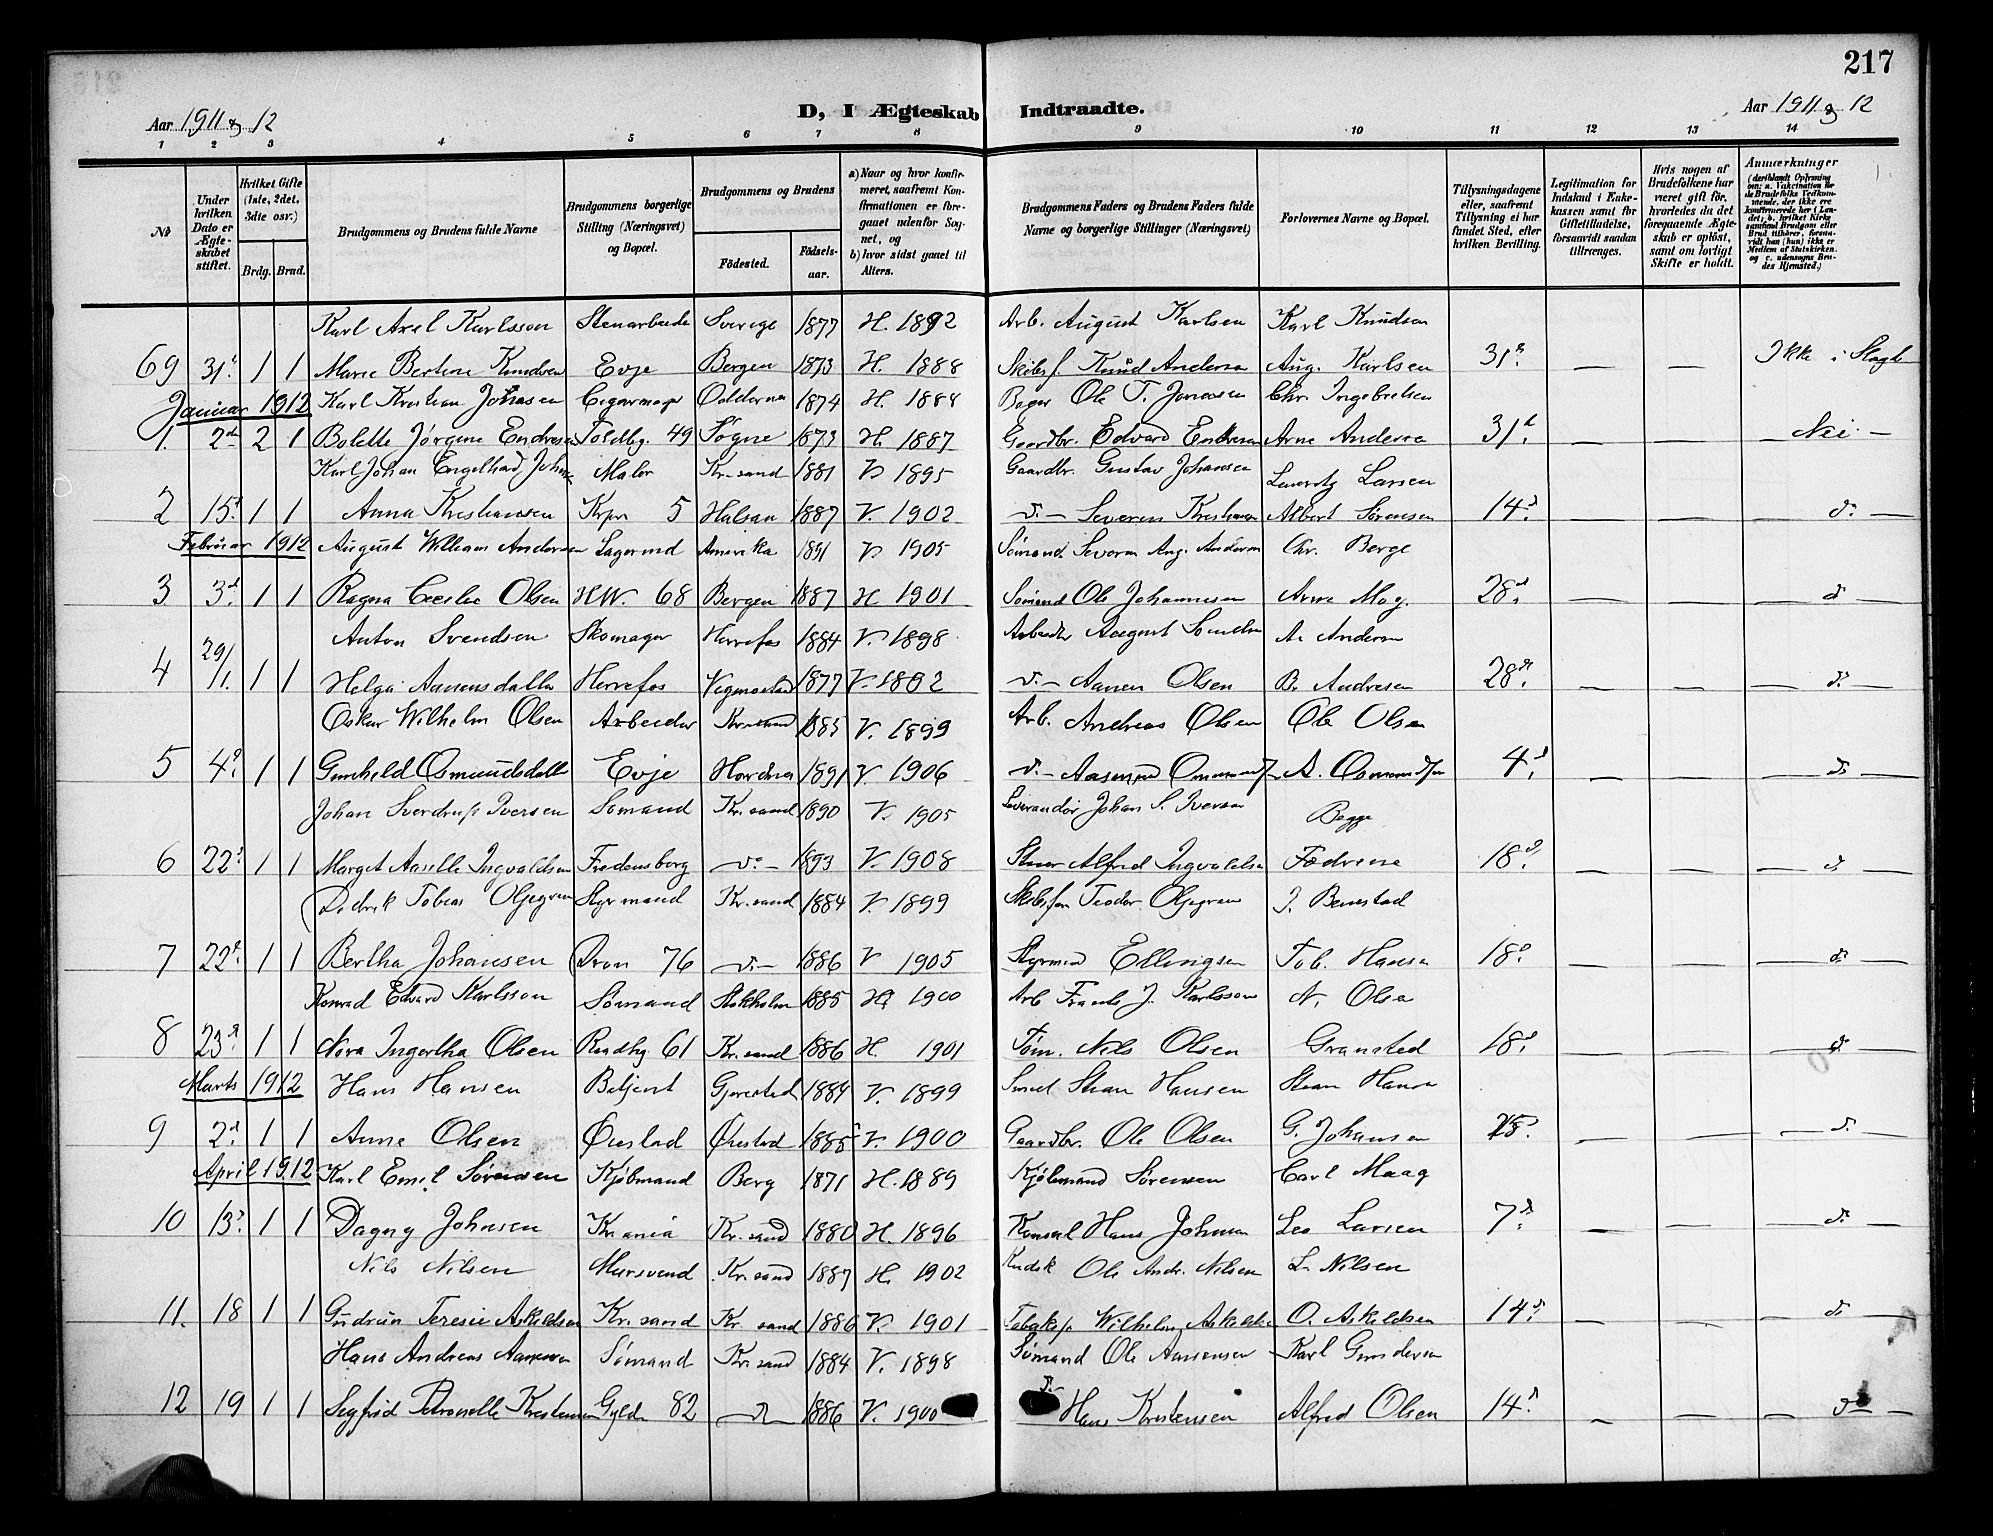 217
Aar 1911 & 12 D, I Ægteskab Indtraadte. Aar 1911 & 12
1 2 3 4 5 6 7 8 9 10 11 12 13 14
No
Under hvilken Dato er Ægteskabet stiftet.
Hvilket Gifte (1ste, 2det, 3die osv.)
Brdg. Brud.
Brudgommens og Brudens fulde Navne
Brudgommens borgerlige Stilling (Næringsvei) og Bopæl.
Brudgommens og Brudens
Födested. Födselsaar.
a) Naar og hvor konfirmeret, saafremt Konfirmationen er foregaaet udenfor Sognet, og
b) hvor sidst gaaet til Alters.
Brudgommens Faders og Brudens Faders fulde Navne og borgerlige Stillinger (Næringsvei)
Forlovernes Navne og Bopæl.
Tillysningsdagene eller, saafremt Tillysning ei har fundet Sted, efter hvilken Bevilling.
Legitimation for Indskud i Enkekassen samt for Giftetilladelse, forsaavidt saadan tiltrænges.
Hvis nogen af Brudefolkene har været gift før, hvorledes da det foregaaende Ægteskab er oplöst, samt om lovligt Skifte er holdt.
Anmærkninger (deriblandt Oplysning om: a. Vakcination for de Brudefolks Vedkommende, der ikke ere konfirmerede her i Landet; b. hvilket Kirkesamfund Brudgom eller Brud tilhörer, forsaavidt han (hun) ikke er Medlem af Statskirken, og c. udensogns Brudes Hjemsted.)
Karl Axel Karlsson Stenarbeide Sverige 1877 H. 1892 Arb. August Karlsen Karl Knudsen
69 31. 1 1 Marie Bertine Knudsen Evje Bergen 1873 H. 1888 Skibsf. Knud Andersen Aug. Karlsen 31. — — Ikke i Slagt
Januar 1912 Karl Kristian Johnsen Cigarmager 1874 H. 1888 Bager Ole T. Chr. Ingebretsen
1. 2d 2 1 Bolette Jörgine Endresen Toldbg. 49 Søgne 1873 H. 1887 Gaardbr. Edvard Endresen Arne Andersen 31. — — — Nei. —
Karl Johan Engelhard Maler Kr.sand 1881 V 1895 Gaardbr. Gustav Johansen Larsen
2 15. 1 1 Anna Kristiansen Krpr 5 1887 V. 1902 d. — Severin Kristiansen Albert Sørensen 14. — — d. —
Februar 1912 August William Andersen Lagermd Amerika 1891 V. 1905 Sømand Severin Aug. Andersen Chr. Berge
3 3. 1 1 Ragna Cecilie Olsen H.W. 68 Bergen 1887 H 1901 Sømand Ole Johannesen Arne Mog. 28. — — d —
Anton Svendsen Skomager Herrefos 1884 V. 1898 Arbeider August A. Andersen
4 29/1. 1 1 Helga Aanensdatter Herrefos Vegusdal 1877 V. 1892 d. — Aanen Olsen B. Andresen 28. — — d. —
Oskar Wilhelm Olsen Arbeider Kr.sand 1885 V. 1899 Arb. Andreas Olsen Ole Olsen
5 4. 1 1 Gunhild Osmundsdatter Evje 1891 V. 1906 d. — Aasmund A. 4. — — d. —
Johan Sverdrup Iversen Sømand Kr.sand 1890 V. 1905 Leverandør Johan S. Iversen Begge
6 22. 1 1 Marget Aaselle Ingvaldsen Fredensborg d. — 1893 V. 1908 Alfred Ingvaldsen Fædrene 18. — — d —
Didrik Tobias Oljegren Styrmand Kr.sand 1884 V. 1899 Skibsfør Teodor Oljegren J. Benestad
7 22. 1 1 Bertha Johansen Dron 76 d. — 1886 V 1905 Styrmand Ellingsen Tob. Hansen 18. — — d. —
Konrad Edvard Karlsson Sømand Stokholm 1885 H. 1900 Arb Frants J. Karlsson N. Olsen
8 23. 1 1 Nora Ingertha Olsen Rundbg 61 Kr.sand 1886 H. 1901 Tøm. Nils Olsen Gransted 18. — — d. —
Marts 1912 Hans Hansen Betjent Gjerestad 1884 V. 1899 Smed Stian Hansen Stian Hansen
9 2. 1 1 Anne Olsen Øiestad Øiestad 1885 V. 1900 Gaardbr. Ole Olsen G. Johansen 25. — — d. —
April 1912 Karl Emil Sørensen Kjøbmand Berg 1871 H. 1889 Kjøbmand Sørensen Carl Maag
10 13. 1 1 Dagny Johnsen Kr.ania Kr.sand 1880 H. 1896 Konsul Hans Johnsen Leo Larsen 7. — — d. —
Nils Nilsen Mursvend Kr.sand 1887 H. 1902 Kudsk Ole Andr. Nilsen L. Nilsen
11. 18 1 1 Gudrun Teresie Askildsen Kr.sand Kr.sand 1886 V. 1901 Wilhelm Askildsen O. Askildsen 14. — — d. —
Hans Andreas Aanensen Sømand Kr.sand 1884 V. 1898 Sømand Ole Aanensen Karl Gundersen
12 19 1 1 Sigfrid Petronelle Kristensen Gyld. 82 — d — 1886 V. 1900 d. — Hans Kristensen Alfred Olsen 14. — — d —